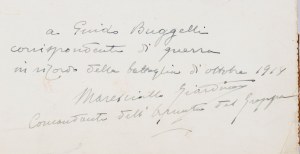 a Guido Buggelli
corrispondente di guerra
in ricordo della battaglia di ottobre 1918
Maresciallo Giardino
Comandante dell'Armata del Grappa